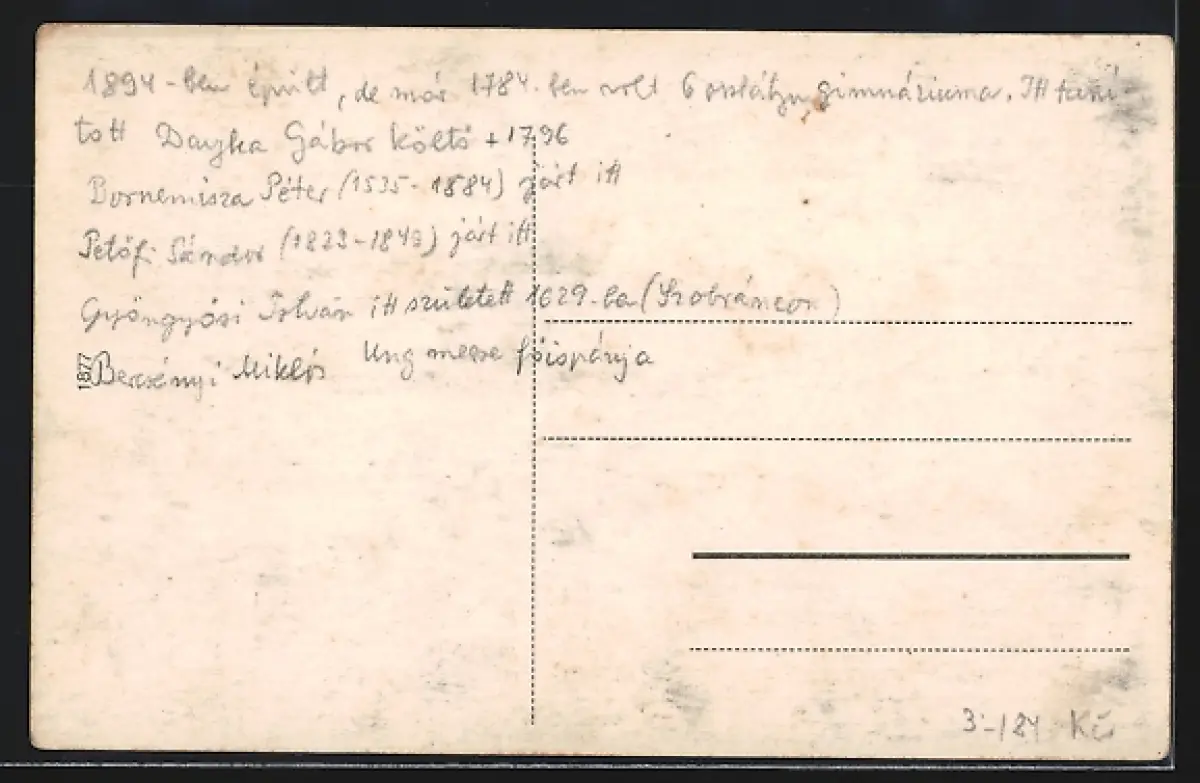 1894-ben épült, de már 1784-ben volt 6 osztályu gimnáziuma. Itt taní-
tott Dayka Gábor költő +1796
Bornemisza Péter (1535-1884) járt itt
Petőfi Sándor (1823-1849) járt itt
Gyöngyösi István itt született 1629-ba (Szobráncon)
Bercsényi Miklós Ung megye főispánja
1877
3-/24 Kč